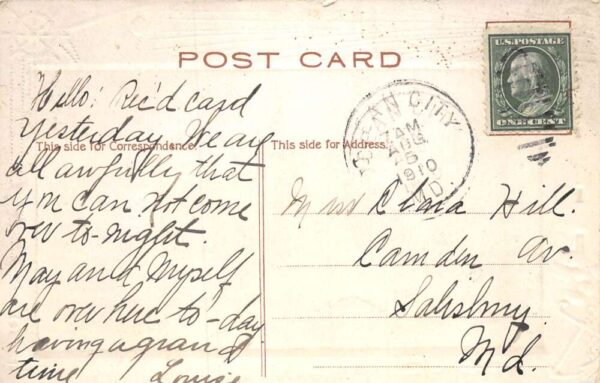 POST CARD
U.S. POSTAGE
ONE CENT
OCEAN CITY
7 AM
AUG
5
1910
MD.
This side for Correspondence.
This side for Address.
Hello! Rec'd card
yesterday. We are
all awfully that
you can not come
over to-night.
May and Myself
are over here to-day
having a grand
time Louise
Miss Clara Hill.
Camden Av.
Salisbury
Md.